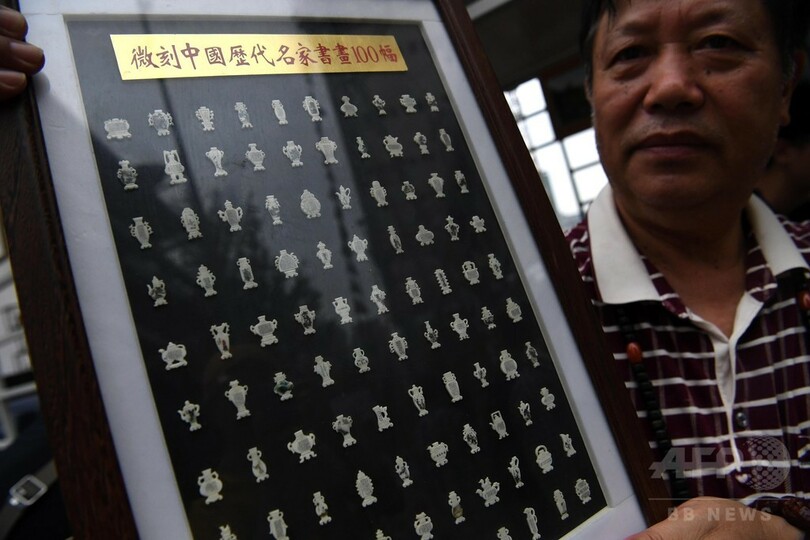 微刻中國歷代名家書畫100幅
AFP
BB NEWS